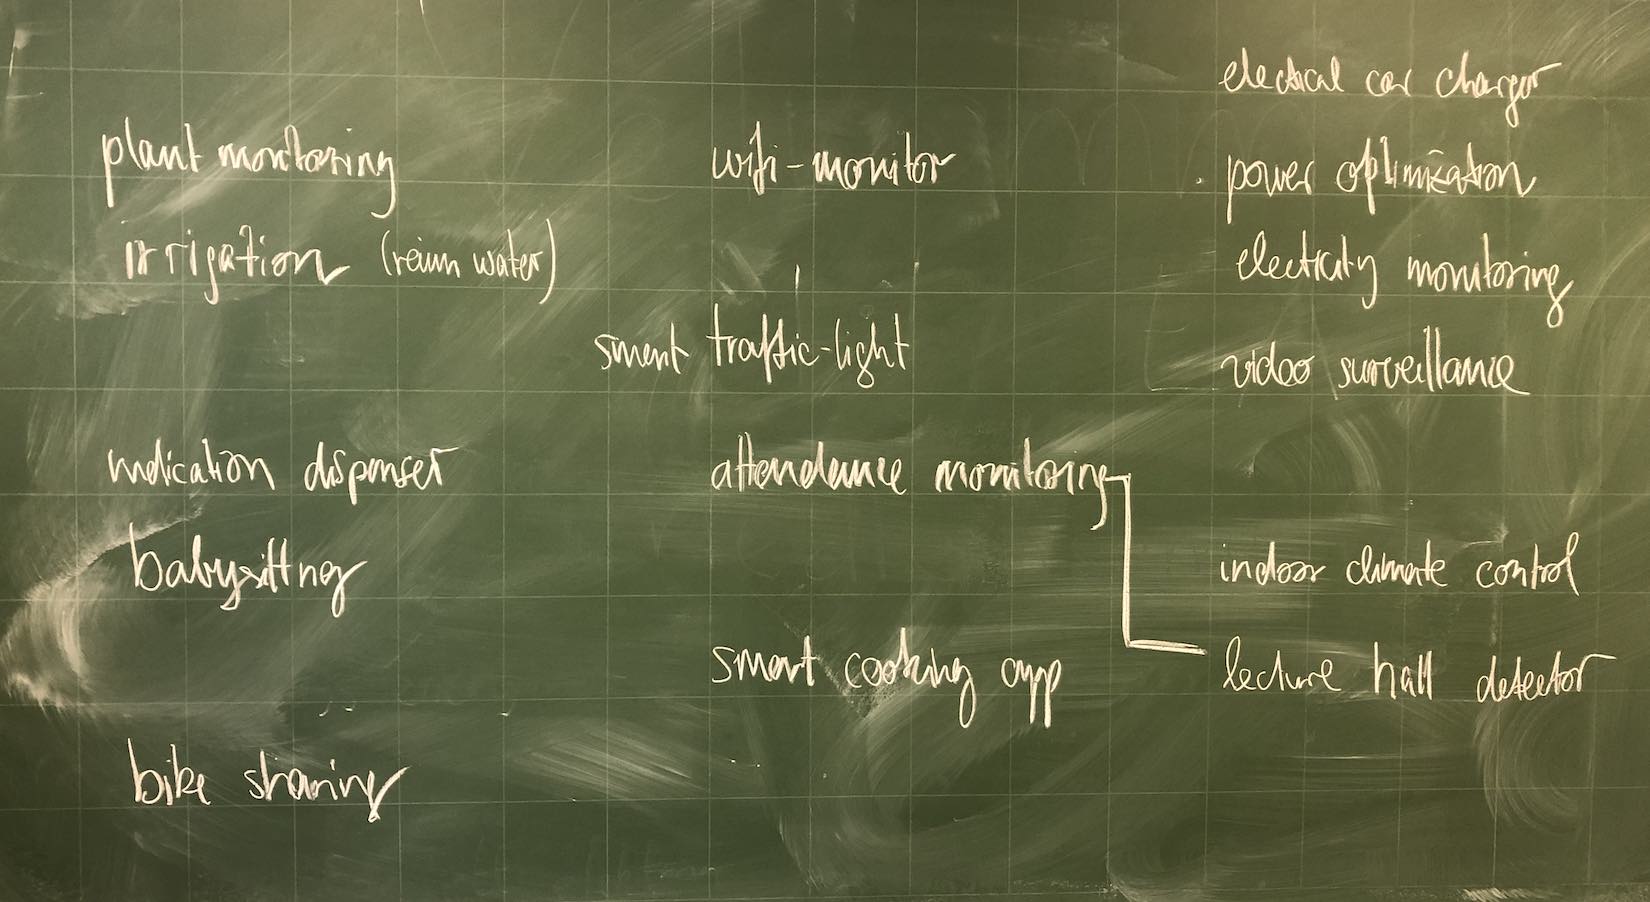 plant monitoring
irrigation (rain water)
medication dispenser
babysitting
bike sharing
wifi-monitor
smart traffic-light
attendance monitoring
smart cooking app
electrical car charger
power optimization
electricity monitoring
video surveillance
indoor climate control
lecture hall detector